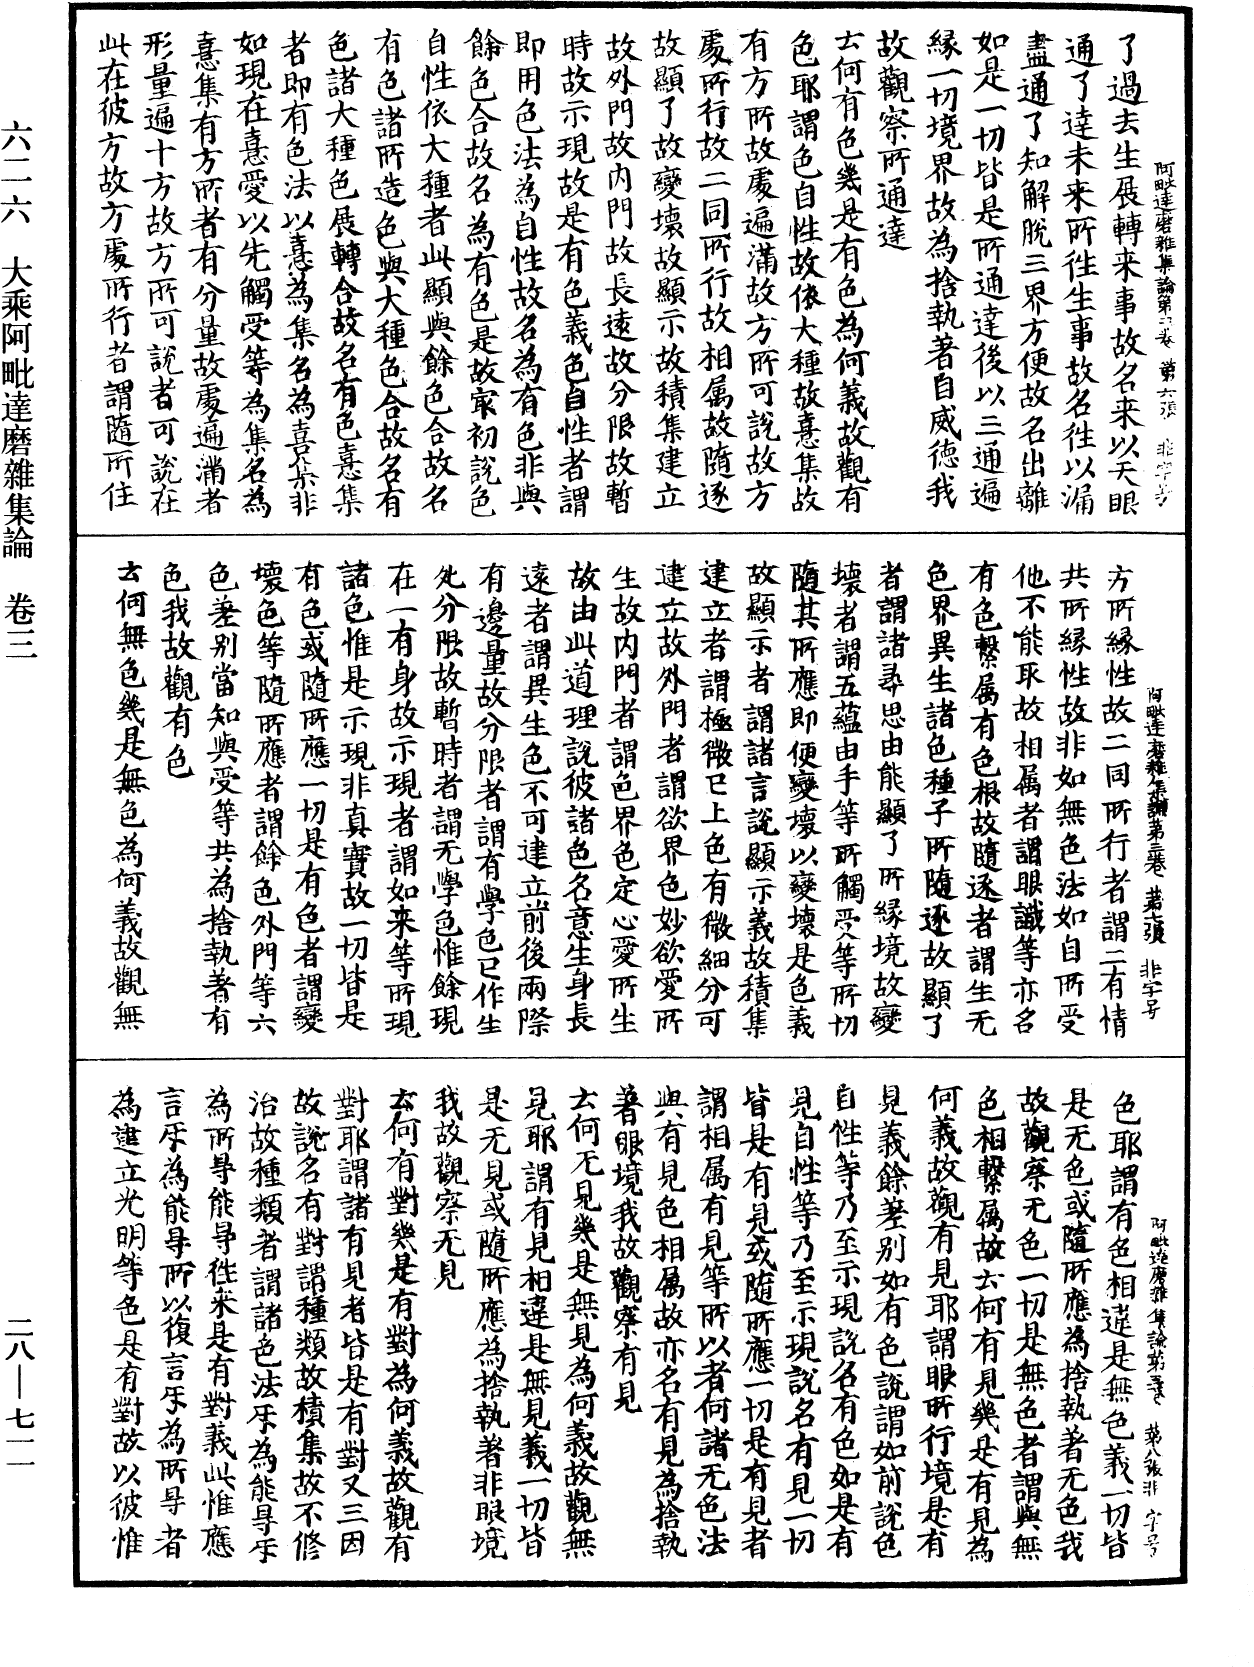 了過去生展轉来事故名来以天眼
通了達未来所徃生事故名徃以漏
盡通了知解脫三界方便故名出離
如是一切皆是所通達後以三通遍
緣一切境界故為捨執著自威德我
故觀察所通達
云何有色幾是有色為何義故觀有
色耶謂色自性故依大種故憙集故
有方所故處遍滿故方所可說故方
處所行故二同所行故相属故随逐
故顯了故變壞故顯示故積集建立
故外門故内門故長遠故分限故暫
時故示現故是有色義色自性者謂
即用色法為自性故名為有色非與
餘色合故名為有色是故㝡初說色
自性依大種者此顯與餘色合故名
有色諸所造色與大種色合故名有
色諸大種色展轉合故名有色憙集
者即有色法以憙為集名為喜集非
如現在憙愛以先觸受等為集名為
憙集有方所者有分量故處遍滿者
形量遍十方故方所可說者可說在
此在彼方故方處所行者謂隨所住
阿毗達磨雜集論第三卷 第六張 非字号
方所緣性故二同所行者謂二有情
共所緣性故非如無色法如自所受
他不能取故相属者謂眼識等亦名
有色繫属有色根故隨逐者謂生无
色界異生諸色種子所隨逐故顯了
者謂諸尋思由能顯了所緣境故變
壞者謂五蘊由手等所觸受等所切
隨其所應即便變壞以變壞是色義
故顯示者謂諸言說顯示義故積集
建立者謂極微已上色有微細分可
建立故外門者謂欲界色妙欲愛所
生故内門者謂色界色定心愛所生
故由此道理說彼諸色名意生身長
遠者謂異生色不可建立前後兩際
有邊量故分限者謂有學色已作生
死分限故暫時者謂无學色惟餘現
在一有身故示現者謂如来等所現
諸色惟是示現非真實故一切皆是
有色或隨所應一切是有色者謂變
壞色等隨所應者謂餘色外門等六
色差别當知與受等共為捨執著有
色我故觀有色
云何無色幾是無色為何義故觀無
阿毗達磨雜集論第三卷 第七張 非字号
色耶謂有色相違是無色義一切皆
是无色或隨所應為捨執著无色我
故觀察无色一切是無色者謂與無
色相繫属故云何有見幾是有見為
何義故觀有見耶謂眼所行境是有
見義餘差别如有色說謂如前說色
自性等乃至示現說名有色如是有
見自性等乃至示現說名有見一切
皆是有見或隨所應一切是有見者
謂相属有見等所以者何諸无色法
與有見色相属故亦名有見為捨執
著眼境我故觀察有見
云何无見幾是無見為何義故觀無
見耶謂有見相違是無見義一切皆
是无見或隨所應為捨執著非眼境
我故觀察无見
云何有對幾是有對為何義故觀有
對耶謂諸有見者皆是有對又三因
故說名有對謂種類故積集故不修
治故種類者謂諸色法㸦為能㝵㸦
為所㝵能㝵徃来是有對義此惟應
言㸦為能㝵所以復言㸦為所㝵者
為建立光明等色是有對故以彼惟
阿毗達磨雜集論第三卷 第八張 非字号
六二六 大乘阿毗達磨雜集論 卷三
二八—七一一